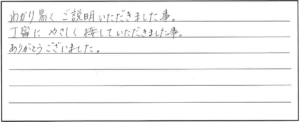 わかり易くご説明いただきました事。
丁寧にやさしく接していただきました事。
ありがとうございました。